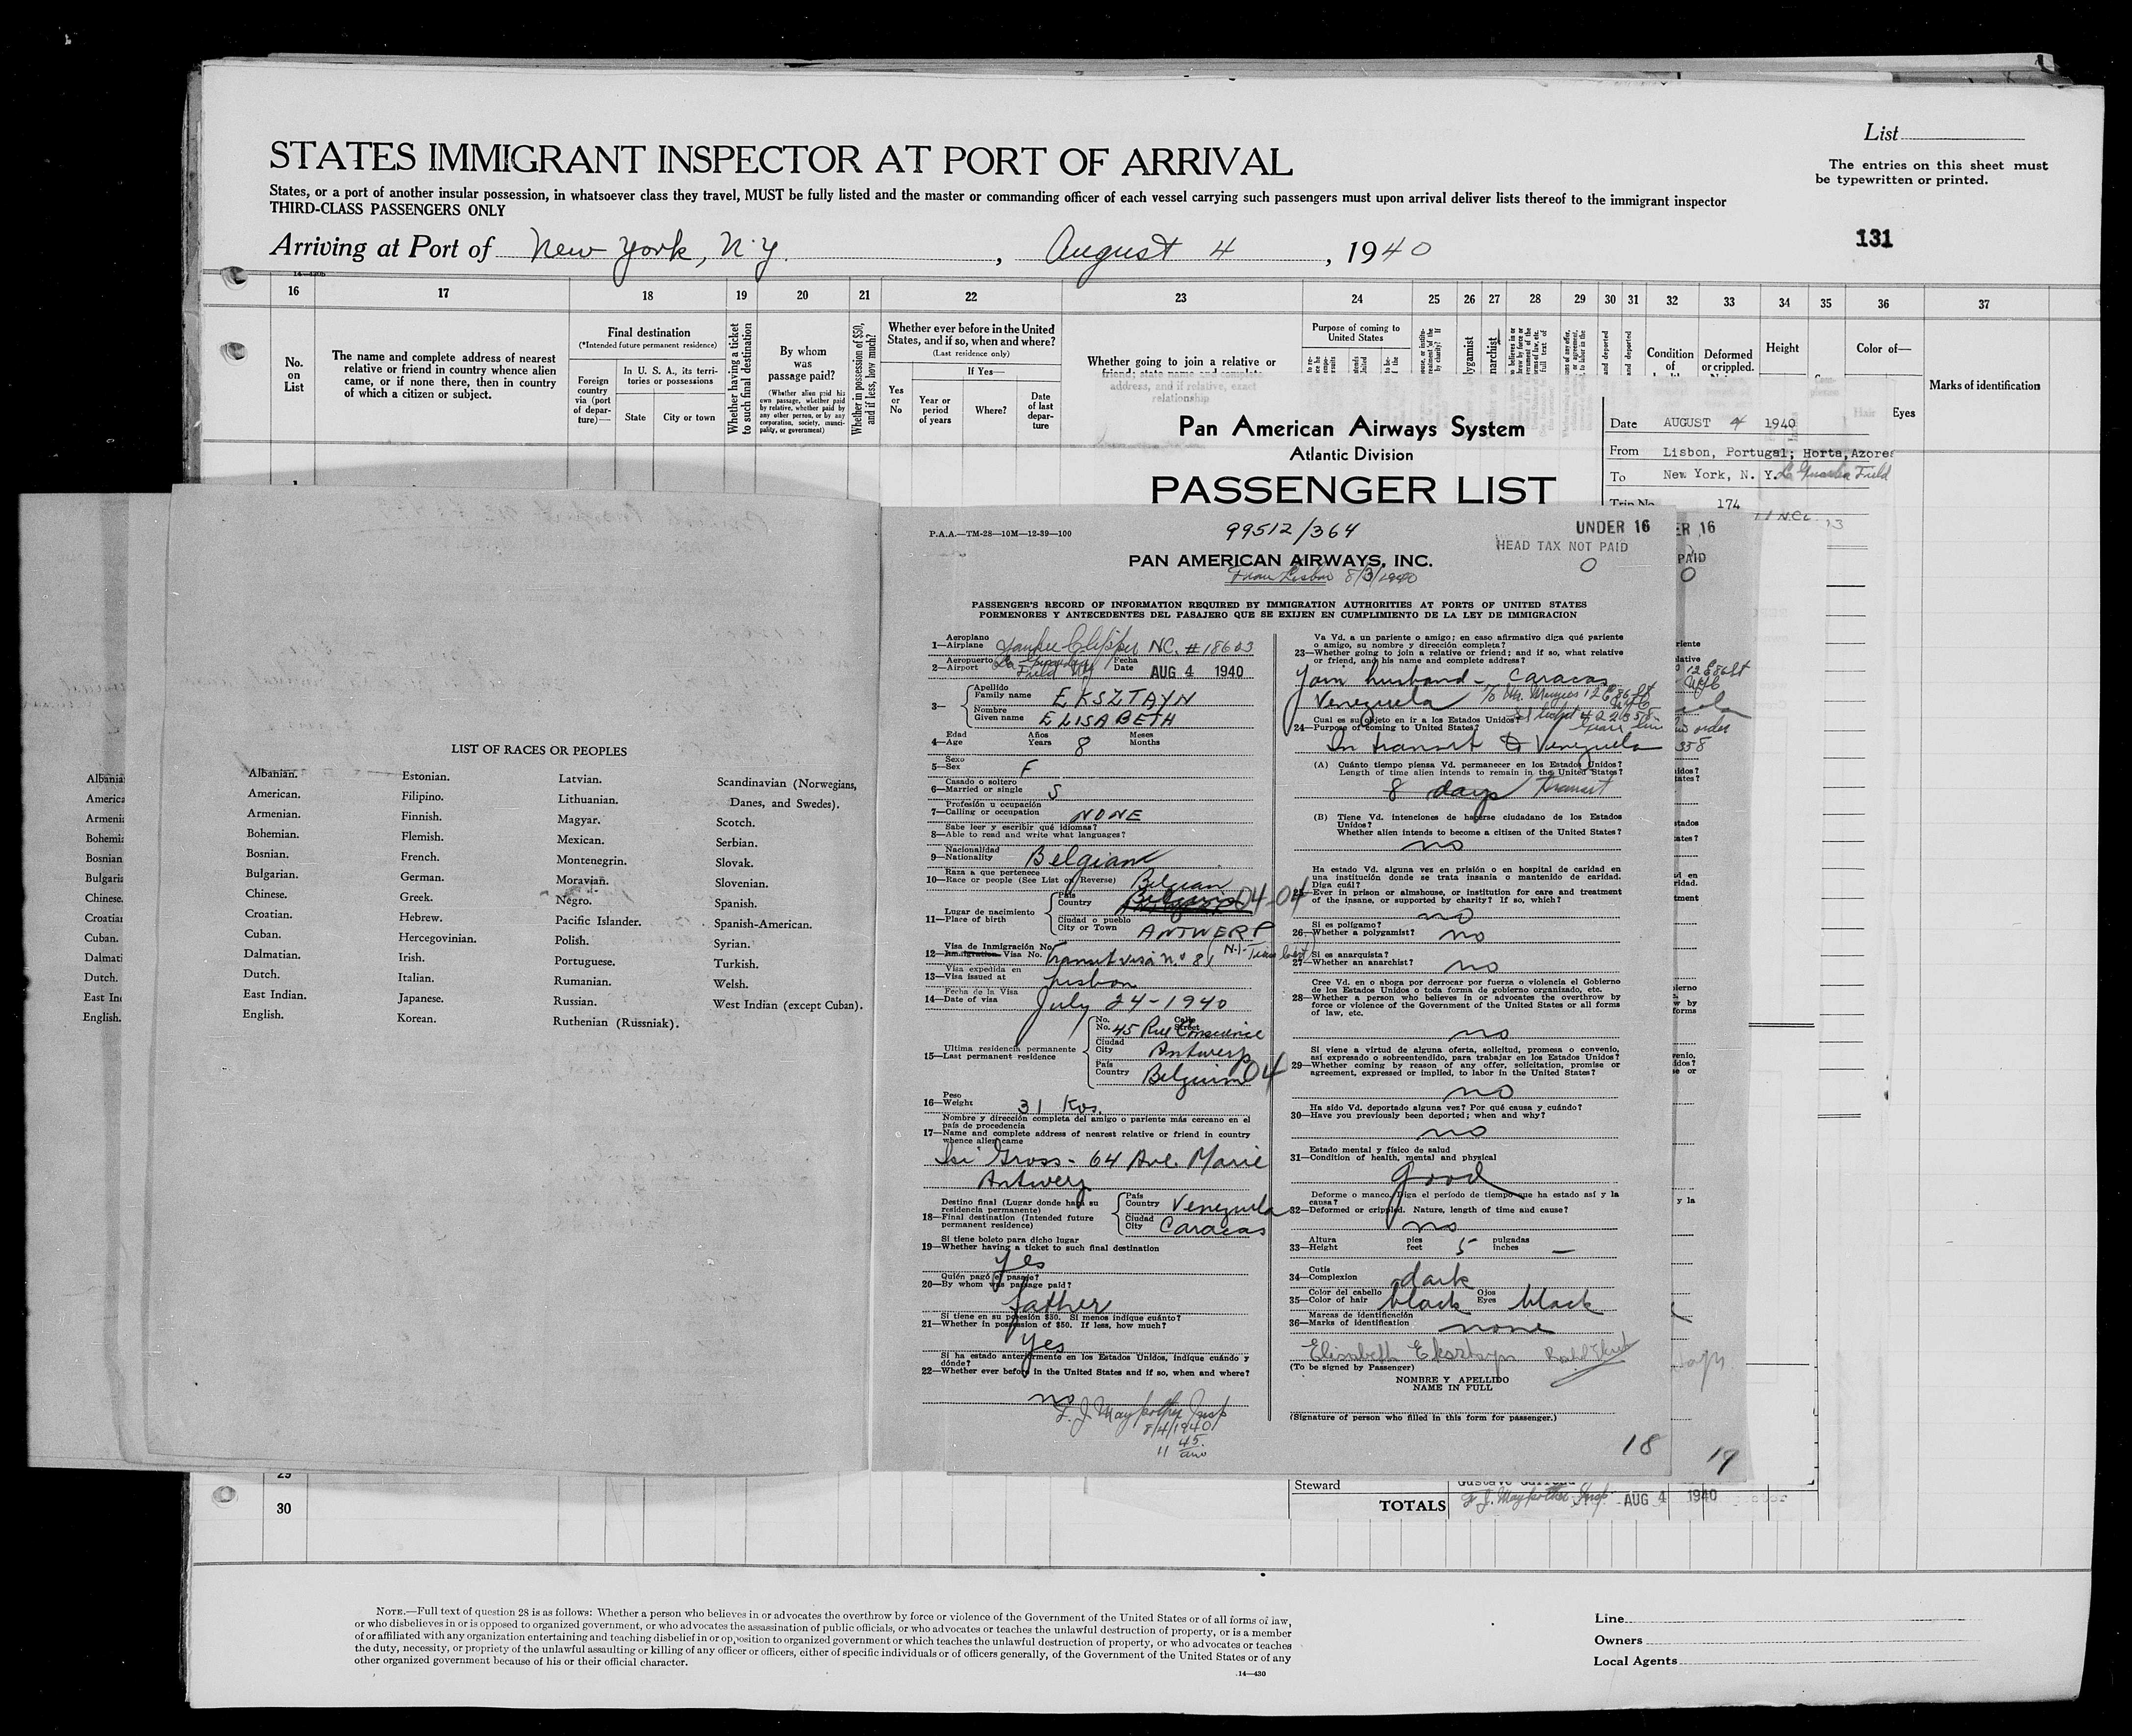 List
The entries on this sheet must
be typewritten or printed.
STATES IMMIGRANT INSPECTOR AT PORT OF ARRIVAL
States, or a port of another insular possession, in whatsoever class they travel, MUST be fully listed and the master or commanding officer of each vessel carrying such passengers must upon arrival deliver lists thereof to the immigrant inspector
THIRD-CLASS PASSENGERS ONLY
131
Arriving at Port of New York, N.Y. , August 4 , 1940
16 17 18 19 20 21 22 23 24 25 26 27 28 29 30 31 32 33 34 35 36 37
No.
on
List
The name and complete address of nearest
relative or friend in country whence alien
came, or if none there, then in country
of which a citizen or subject.
Final destination
(*Intended future permanent residence)
Foreign
country
via (port
of depar-
ture)—
In U. S. A., its terri-
tories or possessions
State
City or town
Whether having a ticket
to such final destination
By whom
was
passage paid?
(Whether alien paid his
own passage, whether paid
by relative, whether paid by
any other person, or by any
corporation, society, munici-
pality, or government)
Whether in possession of $50,
and if less, how much?
Whether ever before in the United
States, and if so, when and where?
(Last residence only)
Yes
or
No
If Yes—
Year or
period
of years
Where?
Date
of last
depar-
ture
Whether going to join a relative or
address, and if relative, exact
relationship
Purpose of coming to
United States
Condition
of
Deformed
or crippled.
Height
Color of—
Hair
Eyes
Marks of identification
Pan American Airways System
Atlantic Division
PASSENGER LIST
Date AUGUST 4 1940
From Lisbon, Portugal; Horta, Azores
To New York, N. Y. La Guardia Field
Trip No. 174
LIST OF RACES OR PEOPLES
Albanian.
American.
Armenian.
Bohemian.
Bosnian.
Bulgarian.
Chinese.
Croatian.
Cuban.
Dalmatian.
Dutch.
East Indian.
English.
Estonian.
Filipino.
Finnish.
Flemish.
French.
German.
Greek.
Hebrew.
Hercegovinian.
Irish.
Italian.
Japanese.
Korean.
Latvian.
Lithuanian.
Magyar.
Mexican.
Montenegrin.
Moravian.
Negro.
Pacific Islander.
Polish.
Portuguese.
Rumanian.
Russian.
Ruthenian (Russniak).
Scandinavian (Norwegians,
Danes, and Swedes).
Scotch.
Serbian.
Slovak.
Slovenian.
Spanish.
Spanish-American.
Syrian.
Turkish.
Welsh.
West Indian (except Cuban).
P.A.A.—TM-28—10M—12-39—100
99512/364
UNDER 16
HEAD TAX NOT PAID
PAN AMERICAN AIRWAYS, INC.
From Lisbon 8/3/1940
PASSENGER'S RECORD OF INFORMATION REQUIRED BY IMMIGRATION AUTHORITIES AT PORTS OF UNITED STATES
PORMENORES Y ANTECEDENTES DEL PASAJERO QUE SE EXIJEN EN CUMPLIMIENTO DE LA LEY DE IMMIGRACION
Aeroplano
1—Airplane Yankee Clipper NC. #18603
Aeropuerto La Guardia Fecha
2—Airport Field NY Date AUG 4 1940
3—
Apellido
Family name EKSZTAYN
Nombre
Given name ELISABETH
Edad Años Meses
4—Age Years 8 Months
Sexo
5—Sex F
Casado o soltero
6—Married or single S
Profesión u ocupación
7—Calling or occupation NONE
Sabe leer y escribir qué idiomas?
8—Able to read and write what languages?
Nacionalidad
9—Nationality Belgian
Raza a que pertenece
10—Race or people (See List on Reverse) Belgian
Lugar de nacimiento
11—Place of birth
País
Country Belgium 04-04
Ciudad o pueblo
City or Town ANTWERP
Visa de Inmigración No.
12—Immigration Visa No. Transit visa No 81
Visa expedida en
13—Visa issued at Lisbon
Fecha de la Visa
14—Date of visa July 24-1940
Ultima residencia permanente
15—Last permanent residence
No. Calle
No. Street 45 Rue Conscience
Ciudad
City Antwerp
País
Country Belgium 04
Peso
16—Weight 31 Kos.
Nombre y dirección completa del amigo o pariente más cercano en el
país de procedencia
17—Name and complete address of nearest relative or friend in country
whence alien came
Isi Gross - 64 Ave. Marie
Antwerp
Destino final (Lugar donde hará su
residencia permanente)
18—Final destination (Intended future
permanent residence)
País
Country Venezuela
Ciudad
City Caracas
Si tiene boleto para dicho lugar
19—Whether having a ticket to such final destination
yes
Quién pagó el pasaje?
20—By whom was passage paid?
father
Si tiene en su posesión $50. Si menos indique cuánto?
21—Whether in possession of $50. If less, how much?
yes
Si ha estado anteriormente en los Estados Unidos, indique cuándo y
dónde?
22—Whether ever before in the United States and if so, when and where?
no
F. J. Mayforther Insp
8/4/1940
11 45
Va Vd. a un pariente o amigo; en caso afirmativo diga qué pariente
o amigo, su nombre y dirección completa?
23—Whether going to join a relative or friend; and if so, what relative
or friend, and his name and complete address?
Join husband - Caracas
Venezuela
Cual es su objeto en ir a los Estados Unidos?
24—Purpose of coming to United States?
In transit to Venezuela
(A) Cuánto tiempo piensa Vd. permanecer en los Estados Unidos?
Length of time alien intends to remain in the United States?
8 days transit
(B) Tiene Vd. intenciones de hacerse ciudadano de los Estados
Unidos?
Whether alien intends to become a citizen of the United States?
no
Ha estado Vd. alguna vez en prisión o en hospital de caridad en
una institución donde se trata insania o mantenido de caridad.
Diga cuál?
25—Ever in prison or almshouse, or institution for care and treatment
of the insane, or supported by charity? If so, which?
no
Si es polígamo?
26—Whether a polygamist? no
Si es anarquista?
27—Whether an anarchist? no
Cree Vd. en o aboga por derrocar por fuerza o violencia el Gobierno
de los Estados Unidos o toda forma de gobierno organizado, etc.
28—Whether a person who believes in or advocates the overthrow by
force or violence of the Government of the United States or all forms
of law, etc.
no
Si viene a virtud de alguna oferta, solicitud, promesa o convenio,
así expresado o sobreentendido, para trabajar en los Estados Unidos?
29—Whether coming by reason of any offer, solicitation, promise or
agreement, expressed or implied, to labor in the United States?
no
Ha sido Vd. deportado alguna vez? Por qué causa y cuándo?
30—Have you previously been deported; when and why?
no
Estado mental y físico de salud
31—Condition of health, mental and physical
good
Deforme o manco. Diga el período de tiempo que ha estado así y la
causa?
32—Deformed or crippled. Nature, length of time and cause?
no
Altura pies pulgadas
33—Height feet 5 inches —
Cutis
34—Complexion dark
Color del cabello Ojos
35—Color of hair black Eyes black
Marcas de identificación
36—Marks of identification none
Elisabeth Eksztayn
(To be signed by Passenger)
NOMBRE Y APELLIDO
NAME IN FULL
(Signature of person who filled in this form for passenger.)
18
19
29
30
Steward
TOTALS F. J. Mayforther Insp. AUG 4 1940
NOTE.—Full text of question 28 is as follows: Whether a person who believes in or advocates the overthrow by force or violence of the Government of the United States or of all forms of law,
or who disbelieves in or is opposed to organized government, or who advocates the assassination of public officials, or who advocates or teaches the unlawful destruction of property, or is a member
of or affiliated with any organization entertaining and teaching disbelief in or opposition to organized government or which teaches the unlawful destruction of property, or who advocates or teaches
the duty, necessity, or propriety of the unlawful assaulting or killing of any officer or officers, either of specific individuals or of officers generally, of the Government of the United States or of any
other organized government because of his or their official character.
14—430
Line
Owners
Local Agents